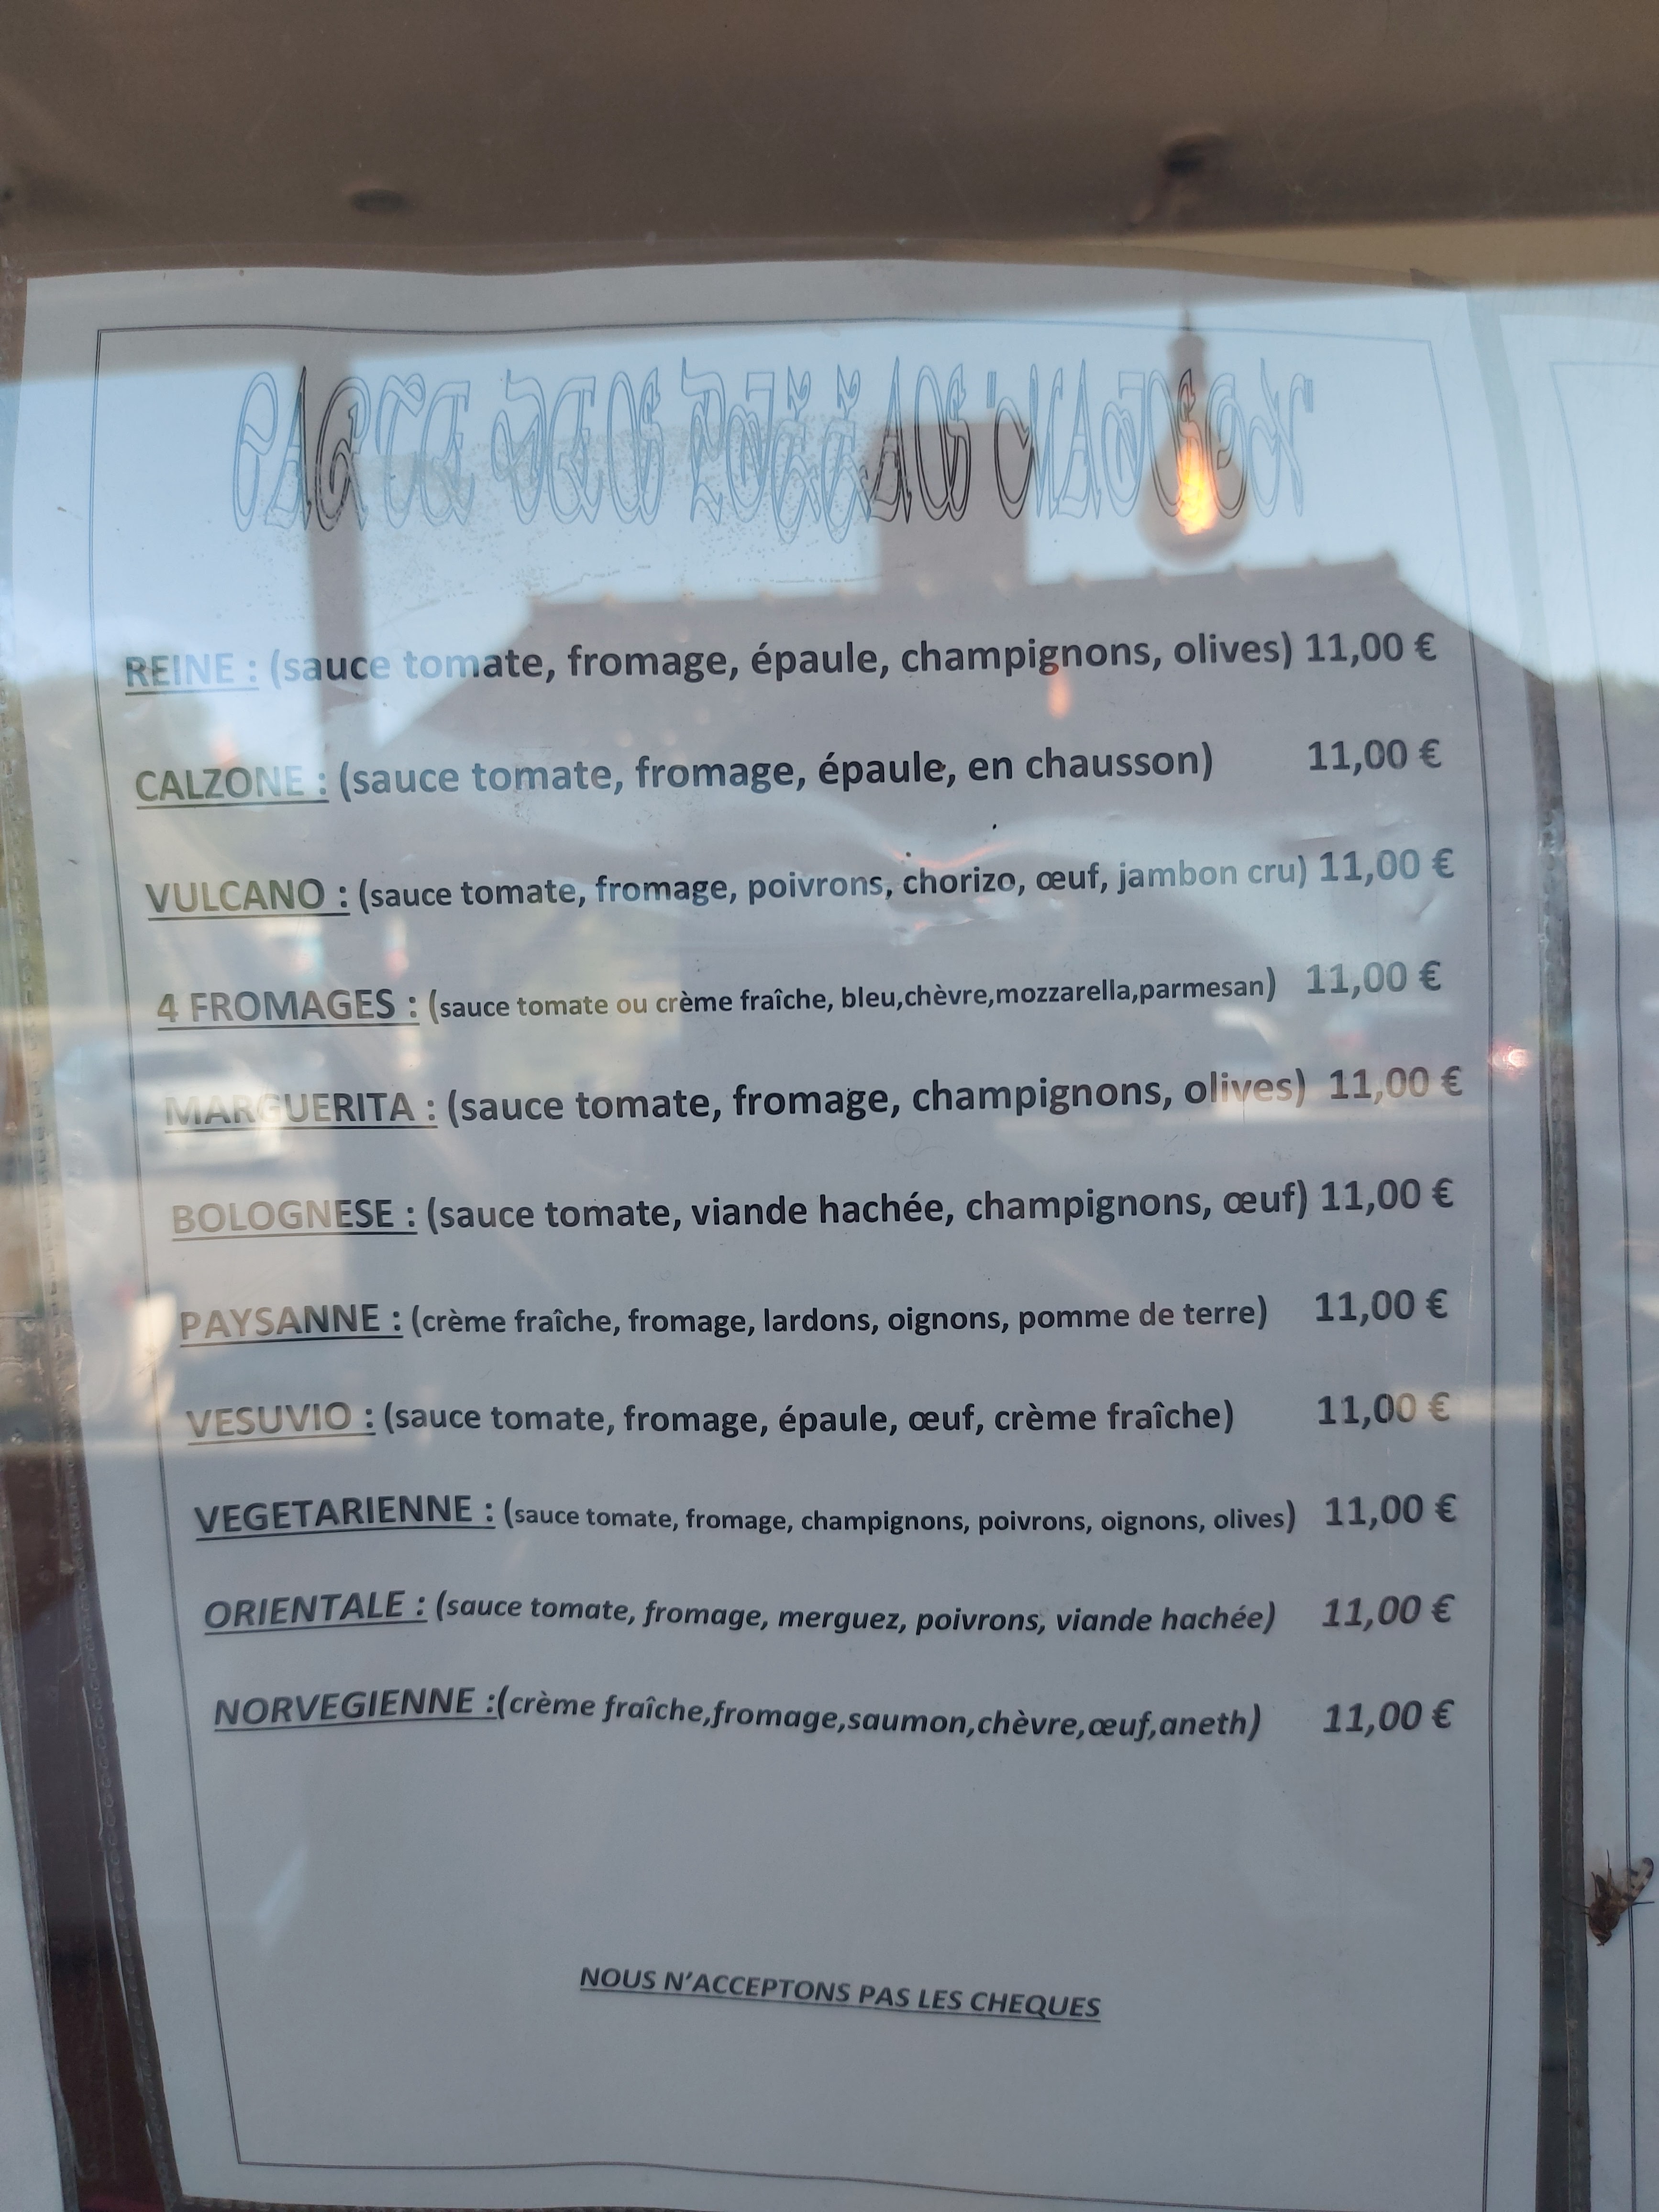 CARTE DES PIZZAS "MAISON"
REINE : (sauce tomate, fromage, épaule, champignons, olives) 11,00 €
CALZONE : (sauce tomate, fromage, épaule, en chausson) 11,00 €
VULCANO : (sauce tomate, fromage, poivrons, chorizo, œuf, jambon cru) 11,00 €
4 FROMAGES : (sauce tomate ou crème fraîche, bleu,chèvre,mozzarella,parmesan) 11,00 €
MARGUERITA : (sauce tomate, fromage, champignons, olives) 11,00 €
BOLOGNESE : (sauce tomate, viande hachée, champignons, œuf) 11,00 €
PAYSANNE : (crème fraîche, fromage, lardons, oignons, pomme de terre) 11,00 €
VESUVIO : (sauce tomate, fromage, épaule, œuf, crème fraîche) 11,00 €
VEGETARIENNE : (sauce tomate, fromage, champignons, poivrons, oignons, olives) 11,00 €
ORIENTALE : (sauce tomate, fromage, merguez, poivrons, viande hachée) 11,00 €
NORVEGIENNE :(crème fraîche,fromage,saumon,chèvre,œuf,aneth) 11,00 €
NOUS N'ACCEPTONS PAS LES CHEQUES